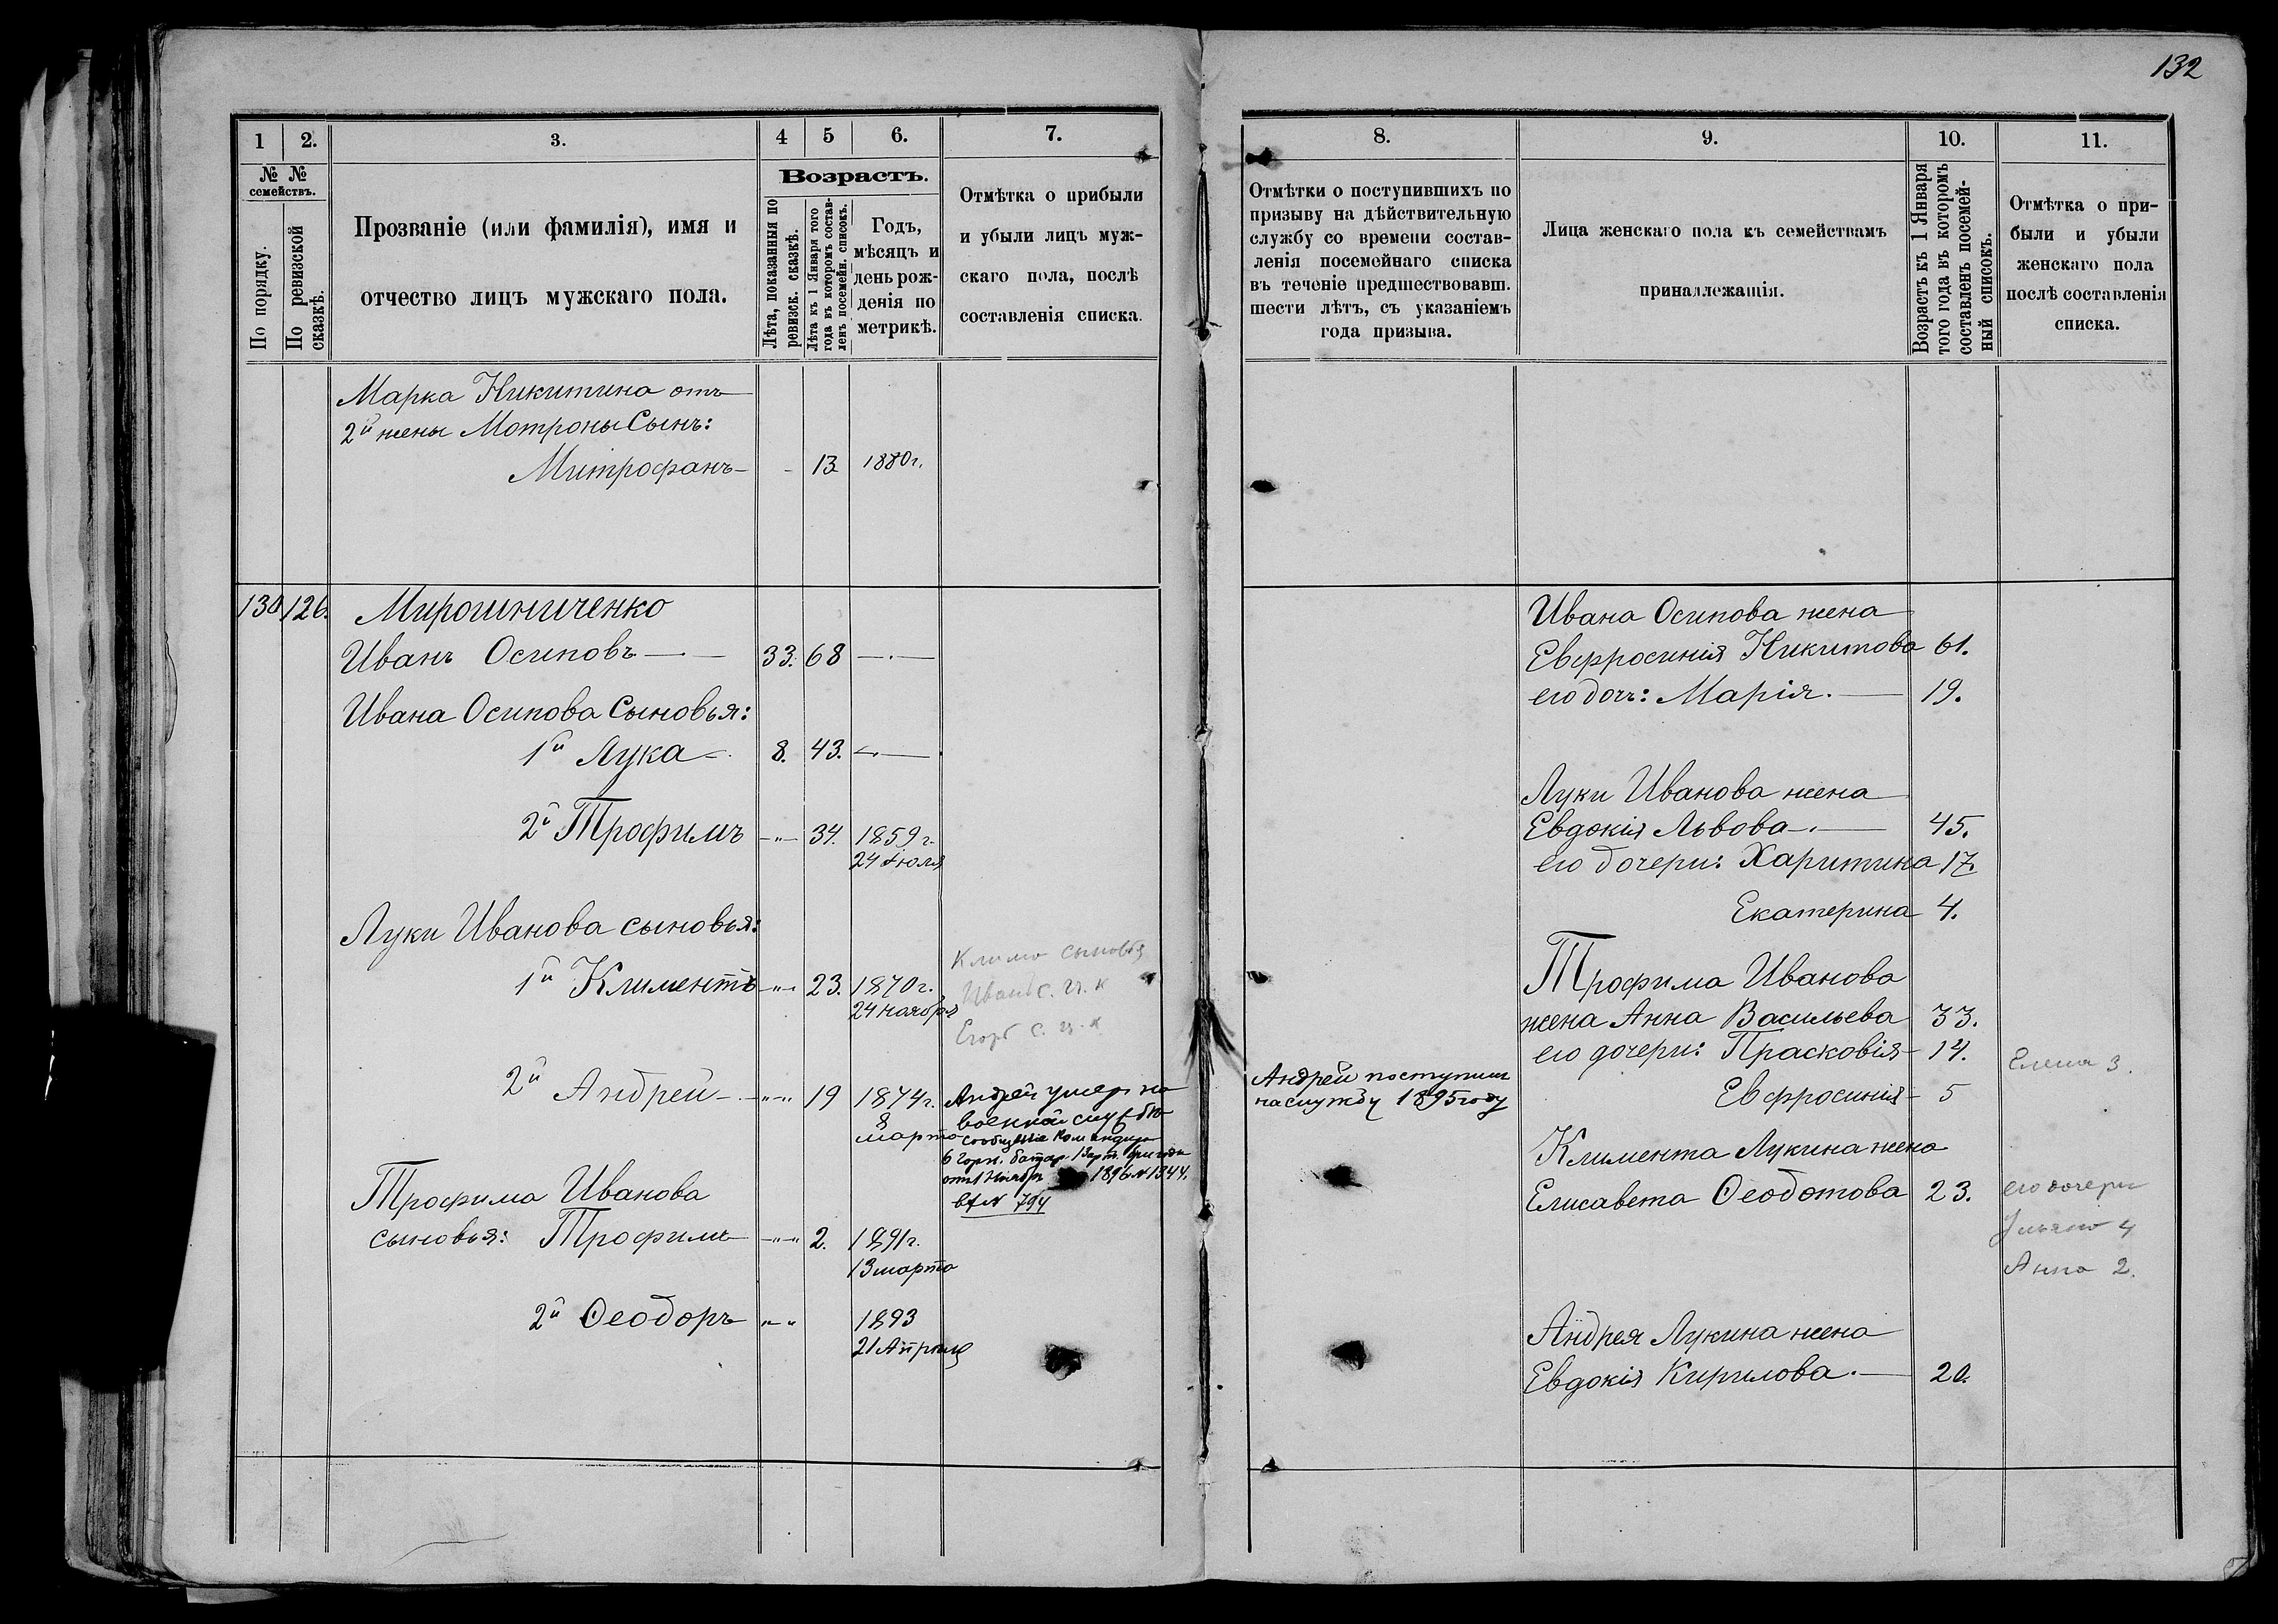 132
1
2.
3.
4
5
6.
7.
№ №
семействъ.
По порядку.
По ревизской
сказкѣ.
Прозваніе (или фамилія), имя и
отчество лицъ мужскаго пола.
Возрастъ.
Лѣта, показанныя по
ревизск. сказкѣ.
Лѣта къ 1 Января того
года въ которомъ состав-
ленъ посемейн. списокъ.
Годъ,
мѣсяцъ и
день рож-
денія по
метрикѣ.
Отмѣтка о прибыли
и убыли лицъ муж-
скаго пола, послѣ
составленія списка.
Марка Никитина отъ
2й жены Мотроны Сынъ:
Митрофанъ - 13 1880 г.
130 126. Мирошниченко
Иванъ Осиповъ 33. 68
Ивана Осипова Сыновья:
1й Лука 8. 43.
2й Трофимъ 34. 1859 г.
24 Іюля
Луки Иванова сыновья:
1й Климентъ 23. 1870 г.
24 ноября
Клима сыновья
Иванъ с. г. к
Егоръ с. г. к
2й Андрей 19 1874 г.
8
марта
Андрей умер на
военной службѣ
сообщеніе Командира
6 горн. батар. 1 арт. бригады
от 1 Ноября 1896 № 1344.
вх № 794
Трофима Иванова
сыновья: Трофимъ 2. 1891 г.
13 марта
2й Ѳеодоръ 1893
21 Апрыля
8.
9.
10.
11.
Отмѣтки о поступившихъ по
призыву на дѣйствительную
службу со времени состав-
ленія посемейнаго списка
въ теченіе предшествовавш.
шести лѣтъ, съ указаніемъ
года призыва.
Лица женскаго пола къ семействамъ
принадлежащія.
Возрастъ къ 1 Января
того года въ которомъ
составленъ посемей-
ный списокъ.
Отмѣтка о при-
были и убыли
женскаго пола
послѣ составленія
списка.
Ивана Осипова жена
Евфросинія Никитова 61.
его дочь: Марія. 19.
Луки Иванова жена
Евдокія Львова 45.
его дочери: Харитина 17.
Екатерина 4.
Трофима Иванова
жена Анна Васильева 33.
его дочери: Прасковія 14.
Елена 3.
Андрей поступил
на службу 1895 году
Евфросинія 5
Климента Лукина жена
Елисавета Ѳеодотова 23.
его дочери
Ульяна 4
Анна 2.
Андрея Лукина жена
Евдокія Кирилова. 20.